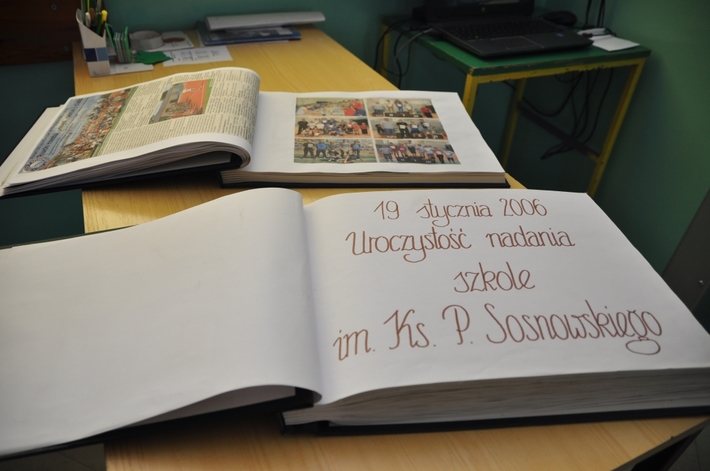 19 stycznia 2006
Uroczystość nadania
szkole
im. Ks. P. Sosnowskiego